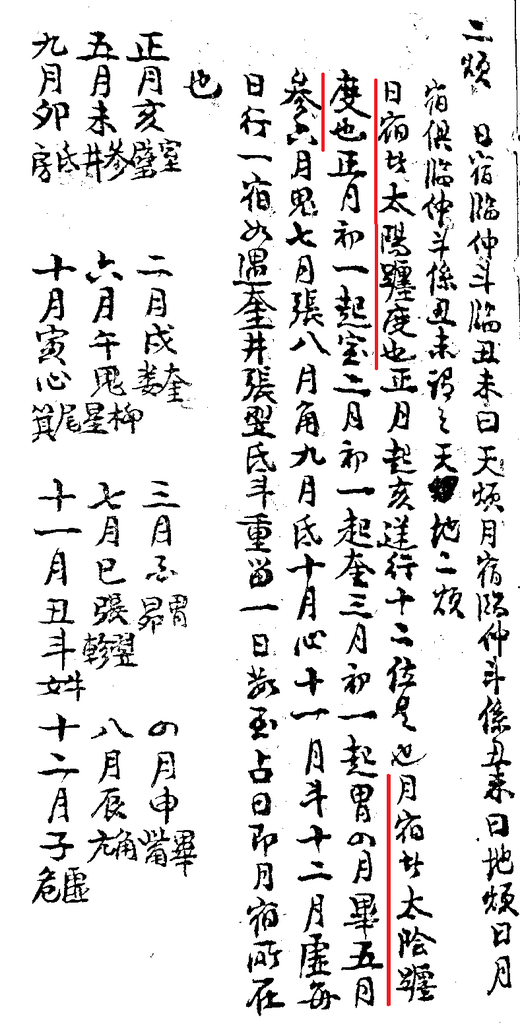 二煩 日宿臨仲斗臨丑未曰天煩月宿臨仲斗係丑未曰地煩日月
宿俱臨仲斗係丑未謂之天地二煩
日宿者太陽躔度也正月起亥逆行十二位是也月宿者太陰躔
度也正月初一起室二月初一起奎三月初一起胃四月畢五月
參六月鬼七月張八月角九月氐十月心十一月斗十二月虛每
日行一宿如遇奎井張翌氐斗重留一日数至占日即月宿所在
也
正月亥室壁 二月戌奎婁 三月酉胃昴 四月申畢觜
五月未參井 六月午鬼柳星 七月巳張翌軫 八月辰角亢
九月卯氐房 十月寅心尾箕 十一月丑斗牛女 十二月子虛危